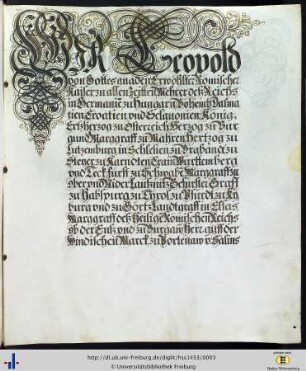 WIR Leopold
von Gottes gnaden Erwölter Römischer
Kaiser zu allen Zeiten Mehrer deß Reichs
in Germanien zu Hungarn Böheim Dalma
tien Croatien und Sclavonien König,
Ertzhertzog zu Österreich Hertzog zu Bur
gund Marggraff zu Mähren Hertzog zu
Lützenburg in Schlesien zu Brabandt zu
Steyer zu Kärndten Crain Württemberg
und Teck fürst zu Schwabe Marggraff zu
ober und Nider Laußnitz Gefürster Graff
zu Habspurg zu Tyrol zu Pfürdt zu Ky
burg und zu Görtz Landtgraff in Elsas
Marggraff deß Heilige Römischen Reichs
ob der Enß und zu Burgaw Herr auff der
Windischen Marck zu Portenaw v: Salins
http://dl.ub.uni-freiburg.de/diglit/hs1453/0003
© Universitätsbibliothek Freiburg
Baden-Württemberg